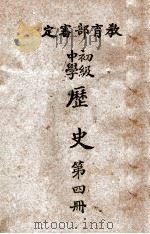 定審部育教
初級
中學
歷史
第四冊
www.jmtu010.com